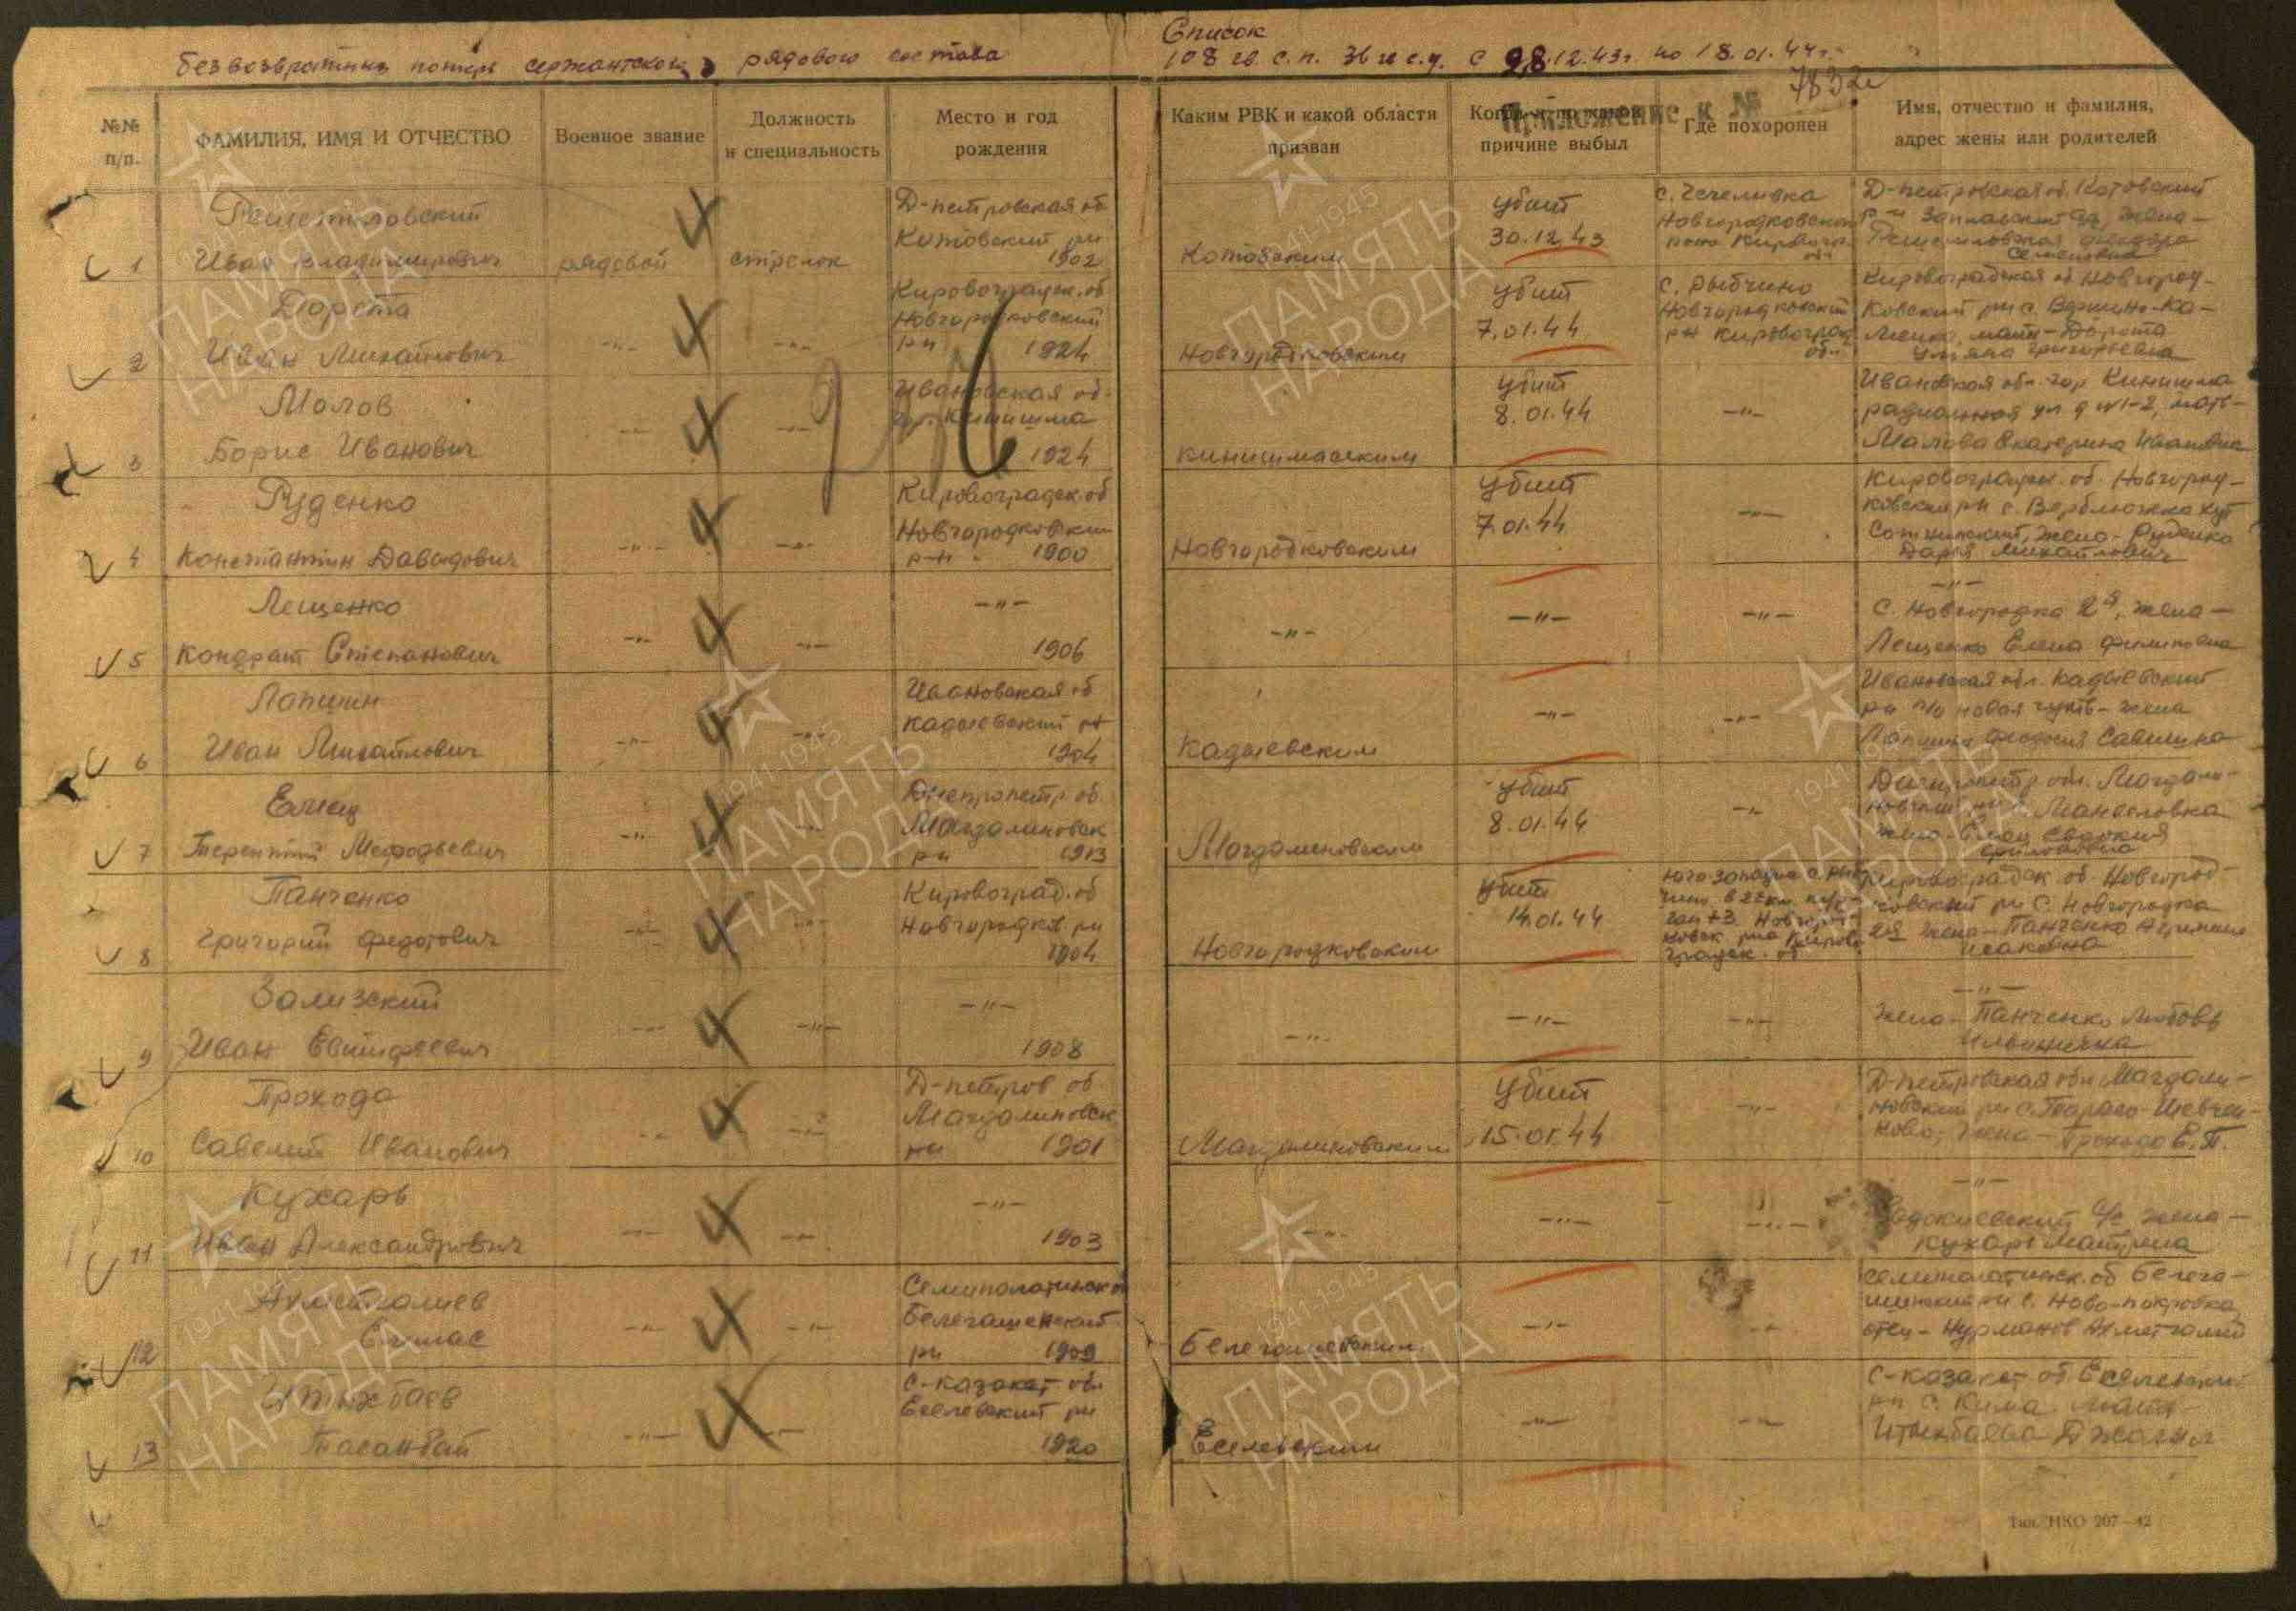 Список
безвозвратных потерь сержантского и рядового состава 108 гв. с.п. 36 гв с.д. с 28.12.43г. по 18.01.44г.
Приложение к № 7832
№№ п/п. ФАМИЛИЯ, ИМЯ И ОТЧЕСТВО Военное звание Должность и специальность Место и год рождения Каким РВК и какой области призван Когда и по какой причине выбыл Где похоронен Имя, отчество и фамилия, адрес жены или родителей
Решетиловский
Иван Владимирович
1 рядовой стрелок
Д-петровская об
Котовский рн
1902
Котовским
убит
30.12.43
с. Чечеливка
Д-петровская об. Котовский
Семеновна
Дорота
Иван Михайлович
2 -"- -"-
Кировоградск. об
Новгородковский
рн 1924
Новгородковским
убит
7.01.44
с. Рыбчино
Новгородковский
рн Кировоград
обл.
Кировоградская об Новгород-
Ковский рн с. Вершино-Ка-
менка, мать-Дорота
Ульяна Григорьевна
Молов
Борис Иванович
3 -"- -"-
Ивановская об.
гор. Кинишма
1924
кинишмаским
убит
8.01.44
-"-
Ивановская обл. гор Кинишма
радиальная ул д №1-2, мать-
Малова Екатерина Ивановна
Руденко
Константин Давыдович
4 -"- -"-
Кировоградск. об
Новгородковским
р-н 1900
Новгородковским
убит
7.01.44
-"-
Кировоградск. об. Новгород-
ковский рн с. Верблюжка хут
жена - Руденко
Дарья Михайлович
Лещенко
Кондрат Степанович
5 -"- -"-
-"-
1906
-"-
-"-
-"-
-"-
С. Новгородка 2я, жена-
Лещенко Елена Филиповна
Лапшин
Иван Михайлович
6 -"- -"-
Ивановская об
кадыевский рн
1904
Кадыевским
-"-
-"-
Ивановская обл. Кадыевский
рн п/о новая жена
Лапшина Феодосия Савельна
Елец
Терентий Мефодьевич
7 -"- -"-
Днепропетр об
Магдалиновск
рн 1913
Магдалиновским
убит
8.01.44
-"-
Днепропетр обл. Магдали-
новский рн с. Мануловка
жена-Елец Евдокия
Панченко
Григорий Федотович
8 -"- -"-
Кировоград. об
Новгородков. рн
1904
Новгородковским
убит
14.01.44
юго-западнее с. Рыб-
чино в 2 км
Новгород-
ковск рна Кирово-
градск. об
Кировоградск об Новгород-
ковский рн С. Новгородка
2я жена-Панченко
Исаковна
Зализский
Иван Евтифьевич
9 -"- -"-
-"-
1908
-"-
-"-
-"-
-"-
жена-Панченко Любовь
Ильинична
Прохода
Савелий Иванович
10 -"- -"-
Д-петров об
Магдалиновск
рн 1901
Магдалиновским
убит
15.01.44
-"-
Д-петровская обл Магдали-
новский рн с. Тарасо-Шевчен-
ново, жена-Прохода Е.П.
Кухарь
Иван Александрович
11 -"- -"-
-"-
1903
-"-
-"-
-"-
-"-
с/с жена-
Кухарь Матрена
Ахметкалиев
12 -"- -"-
Семипалатинск об
Белегашенский
рн 1909
Белегашевским
-"-
-"-
семиполатинск. об Белега-
шинский рн с. Ново-покровка
отец-Нурманов Ахметкалий
Итыкбаев
Тасанбай
13 -"- -"-
С-казахст обл
Еселевский рн
1920
Еселевским
-"-
-"-
С-казахст об Еселевский
рн с. Кима мать-
Итыкбаева
Тип. НКО 207-42
1941-1945
ПАМЯТЬ
НАРОДА